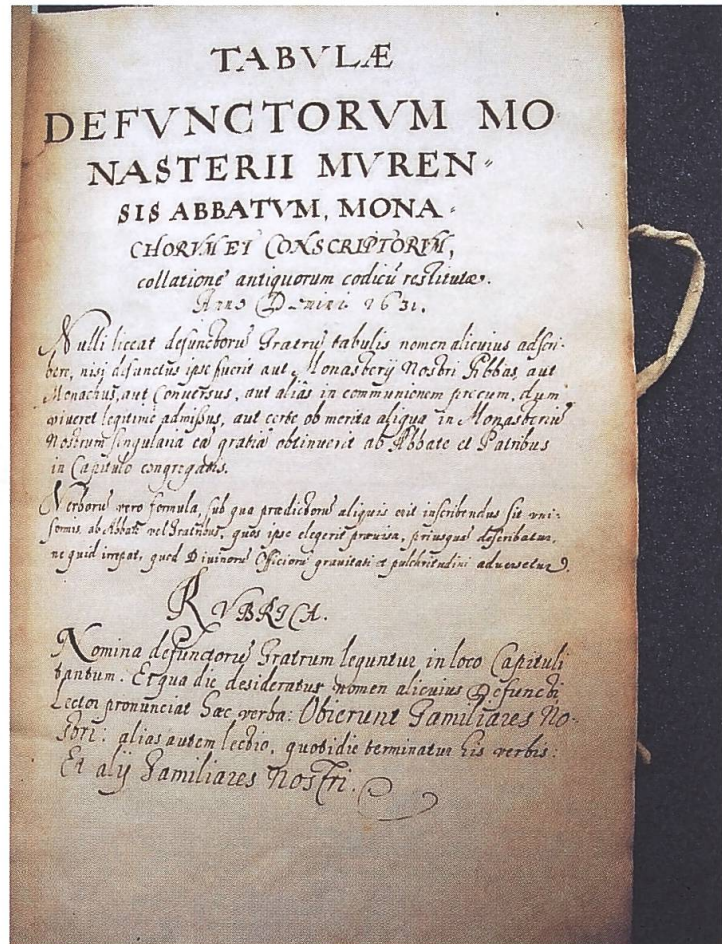 TABVLÆ
DEFVNCTORVM MO
NASTERII MVREN=
SIS ABBATVM, MONA-
CHORVM ET CONSCRIPTORVM,
collatione antiquorum codicũ restitutæ.
Anno Domini 1631.
Nulli liceat defunctorũ Fratrũ tabulis nomen alicuius adscri-
bere, nisi defunctus ipse fuerit aut Monasterij Nostri Abbas, aut
Monachus, aut Conversus, aut aliàs in communionem precum, dum
viveret legitimè admissus, aut certe ob merita aliqua in Monasteriũ
Nostrum singularia eã gratiã obtinuerit ab Abbate et Patribus
in Capitulo congregatis.
Verborũ vero formula, sub qua prædictorũ aliquis erit inscribendus sit uni-
formis, ab Abbate vel Fratribus, quos ipse elegerit prævisa, priusquã describatur,
ne quid irrepat, quod Divinorũ Officiorũ gravitati et pulchritudini adversetur.
RVBRICA.
Nomina defunctorũ Fratrum leguntur in loco Capituli
tantum. Et qua die desideratur nomen alicuius Defuncti
Lector pronunciat hæc verba: Obierunt Familiares No-
stri: alias autem lectio, quotidie terminatur his verbis:
Et alij Familiares Nostri.